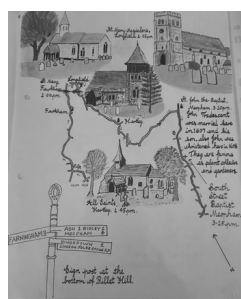 St. Mary Magdalene,
Longfield 2.25pm.
St. Mary
Fawkham
2.00pm.
Longfield
Fawkham
Hartley
St. John the Baptist,
Meopham 3.20pm.
John Tradescant
was married here
in 1607 and his
son, also John was
christened here in 1608
They are famous
as plant collectors
and gardeners.
All Saints,
Hartley 2.45pm.
South
Street
Baptist
Meopham
3.35pm.
FARNINGHAM
ASH & RIDLEY
MEOPHAM
Sign post at the
bottom of Billet Hill